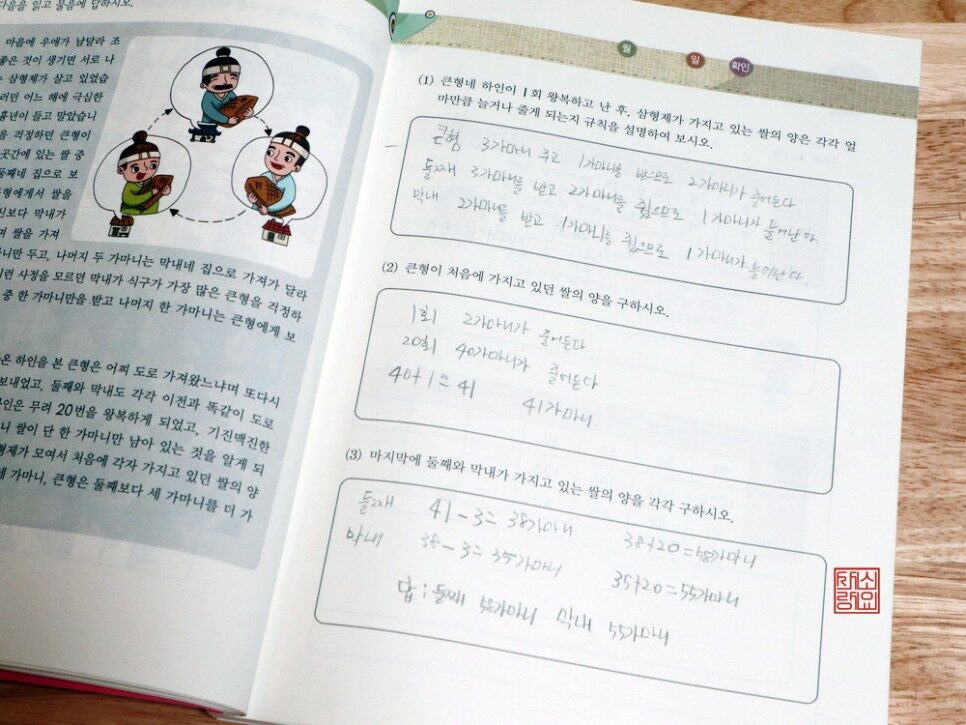 다음을 읽고 물음에 답하시오.
마을에 우애가 남달라 조
좋은 것이 생기면 서로 나
삼형제가 살고 있었습
러던 어느 해에 극심한
흉년이 들고 말았습니
을 걱정하던 큰형이
곳간에 있는 쌀 중
둘째네 집으로 보
형에게서 쌀을
신보다 막내가
며 쌀을 가져
니만 두고, 나머지 두 가마니는 막내네 집으로 가져가 달라
이런 사정을 모르던 막내가 식구가 가장 많은 큰형을 걱정하
중 한 가마니만을 받고 나머지 한 가마니는 큰형에게 보
온 하인을 본 큰형은 어찌 도로 가져왔느냐며 또다시
보내었고, 둘째와 막내도 각각 이전과 똑같이 도로
인은 무려 20번을 왕복하게 되었고, 기진맥진한
니 쌀이 단 한 가마니만 남아 있는 것을 알게 되
형제가 모여서 처음에 각자 가지고 있던 쌀의 양
세 가마니, 큰형은 둘째보다 세 가마니를 더 가
월 일 확인
(1) 큰형네 하인이 1회 왕복하고 난 후, 삼형제가 가지고 있는 쌀의 양은 각각 얼
마만큼 늘거나 줄게 되는지 규칙을 설명하여 보시오.
큰형 3가마니 주고 1가마니를 받으므로 2가마니가 줄어든다
둘째 3가마니를 받고 2가마니를 줬으므로 1가마니가 늘어난다.
막내 2가마니를 받고 1가마니를 줬으므로 1가마니가 늘어난다.
(2) 큰형이 처음에 가지고 있던 쌀의 양을 구하시오.
1회 2가마니가 줄어든다
20회 40가마니가 줄어든다
40+1=41 41가마니.
(3) 마지막에 둘째와 막내가 가지고 있는 쌀의 양을 각각 구하시오.
둘째 41-3=38가마니 38+20=58가마니
막내 38-3=35가마니 35+20=55가마니
답: 둘째 58가마니 막내 55가마니